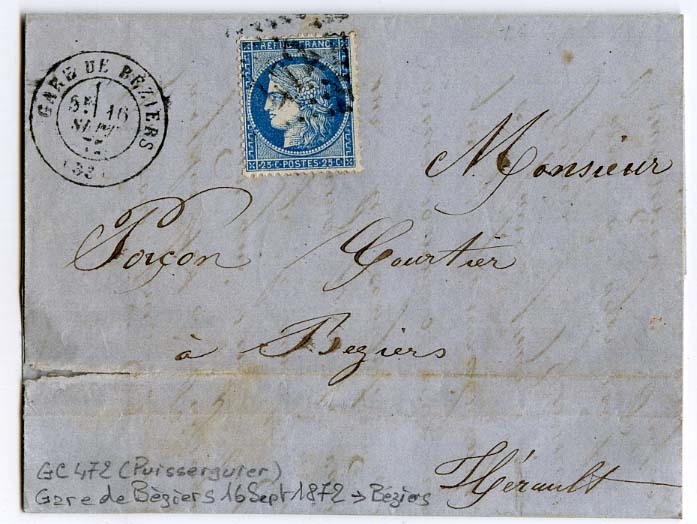 GARE DE BÉZIERS
5E 16
SEPT
72
(33)
REPUB FRANC
25 C POSTES 25 C
Monsieur
Courtier
à Beziers
Hérault
GC 472 (Puisserguier)
Gare de Bèziers 16 Sept 1872 → Béziers